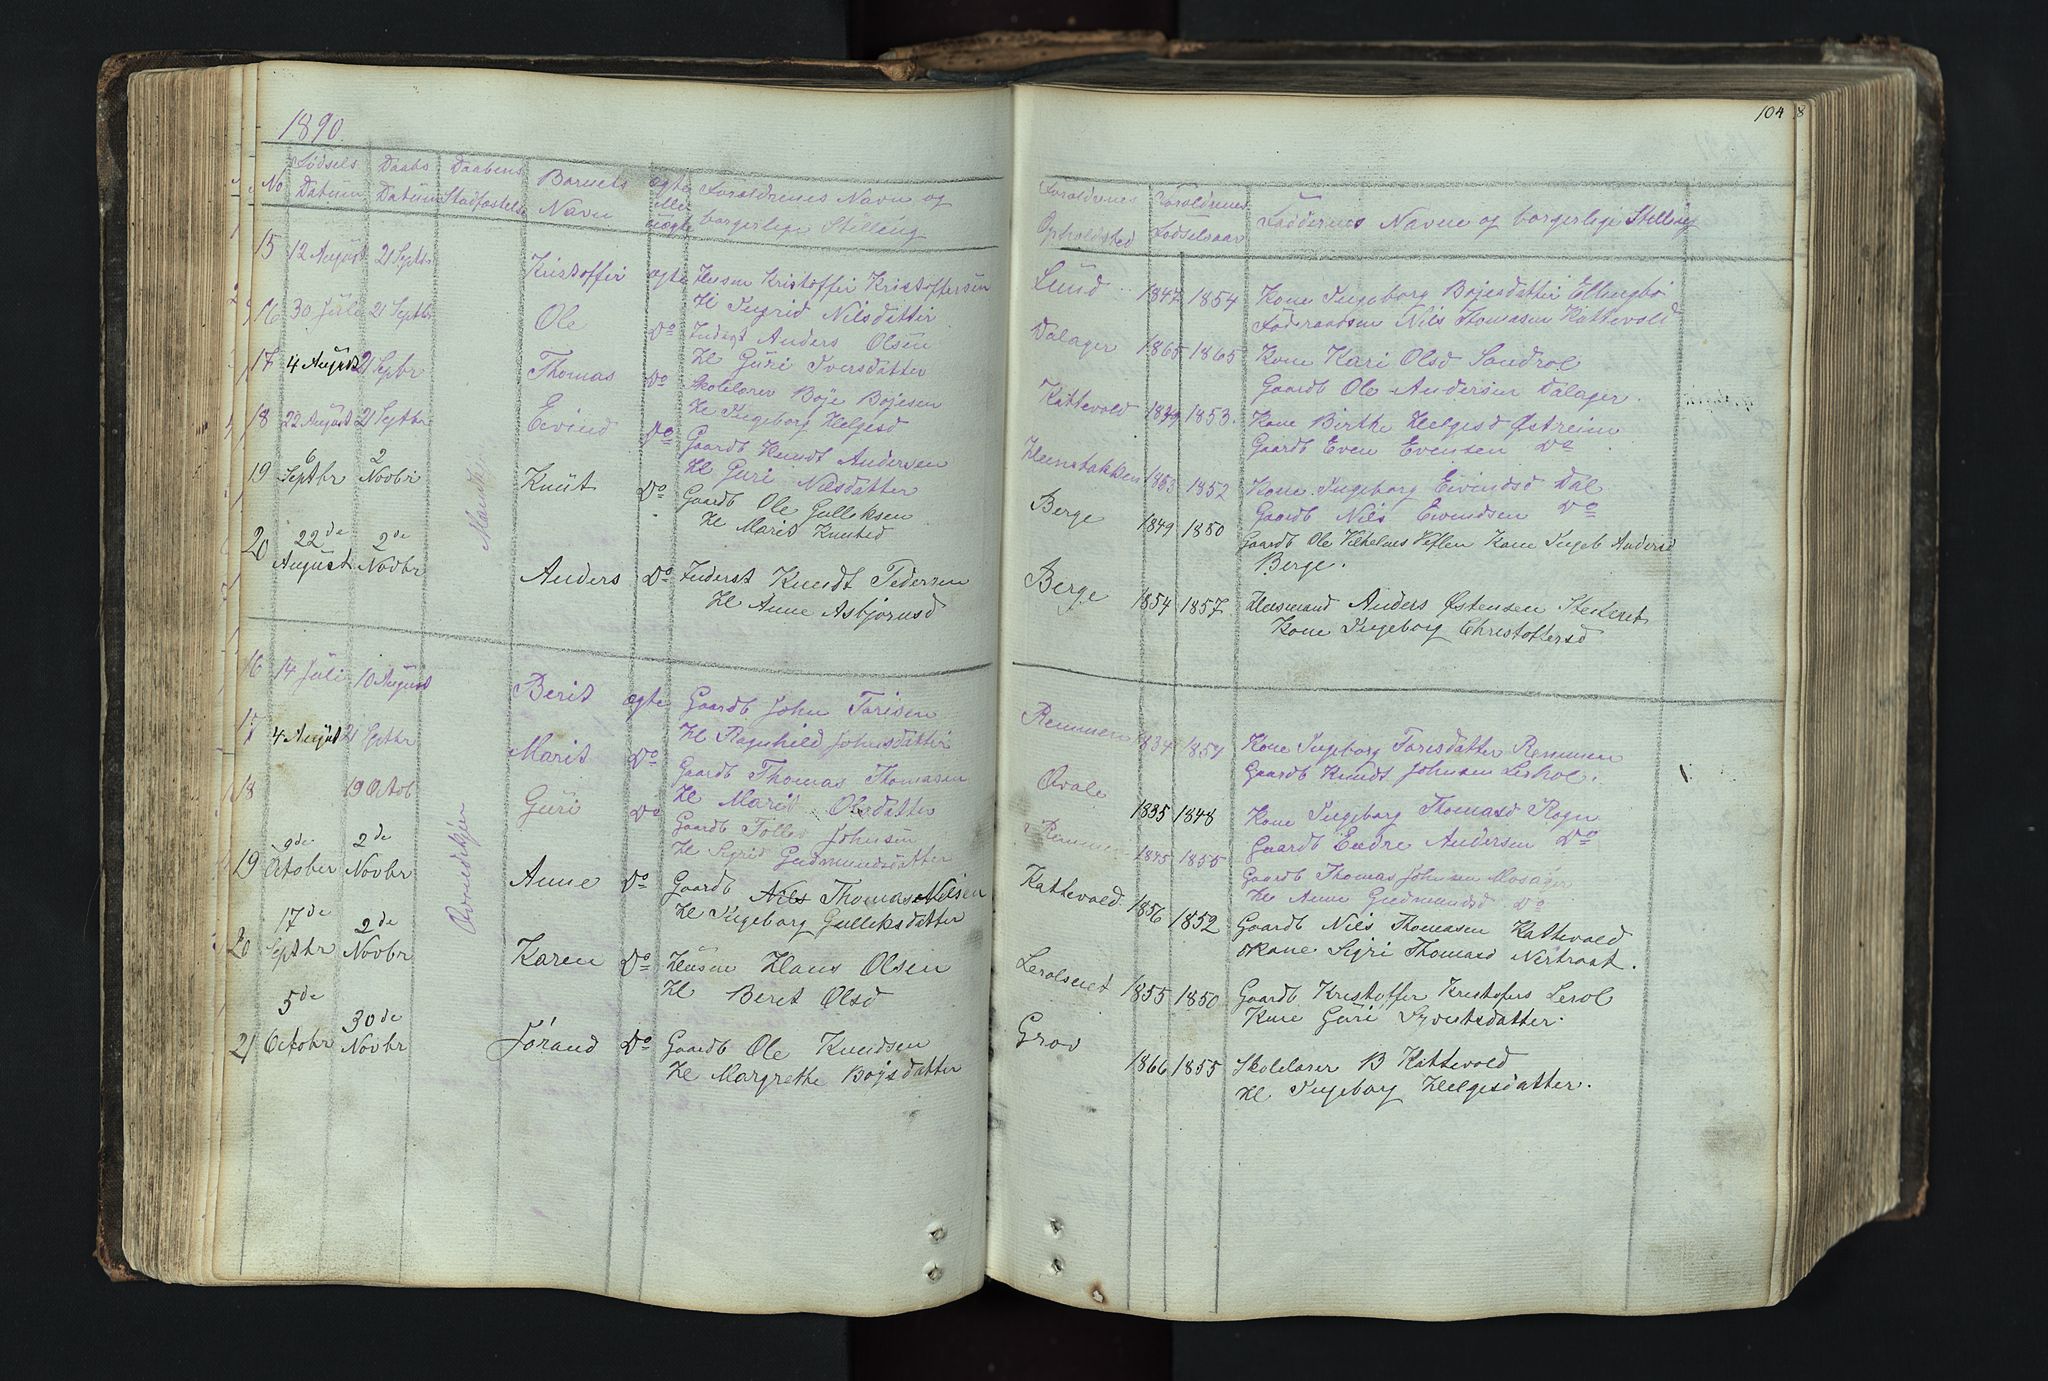 1890
104
No
Fødsels Datum
Daabs Datum
Daabens Stadfæstelse
Barnets Navn
ægte eller uægte
Forældrenes Navn og borgerlige Stilling
Forældrenes Opholdsted
Forældrenes Fødselsaar
Faddernes Navne og borgerlige Stilling
Mandkjøn
15 12 August 21 Septbr Kristoffer ægte Husm Kristoffer Kristoffersen
H Ingrid Nilsdatter
Lund 1847 1854 Kone Ingeborg Bojesdatter Ellingbø
Føderaadsm Nils Thomasen Kattevold
16 30 Juli 21 Septbr Ole Do Inderst Anders Olsen
H Guri Iversdatter
Dalager 1865 1865 Kone Kari Olsd Sandrol
Gaardb Ole Andersen Dalager
17 4 August 21 Septbr Thomas Do Skolelærer Boje Bojesen
H Ingeborg Helgesd
Kattevold 1849 1853. Kone Birthe Helgesd Østrein
Gaardb Even Evensen Do
18 22 August 21 Septbr Eivind Do Gaardb Knudt Andersen
H Guri Nilsdatter
1863 1852 Kone Ingeborg Eivindsd Dal
Gaardb Nils Eivindsen Do
19 6 Septbr 2 Novbr Knut Do Gaardb Ole Gulleksen
H Marit Knutsd
Berge 1849 1850 Gaardb Ole Vilhelms Heflen Kone Ingeb Andersd
Berge.
20 22de August 2de Novbr Anders Do Inderst Knudt Pedersen
H Anne Asbjørnsd
Berge 1854 1857. Husmand Anders Østensen
Kone Ingeborg Christoffersd
Qvindekjøn
16 14 Juli 10 August Berit ægte Gaardb John Torisen
H Ragnhild Johnsdatter
Remmen 1834 1854 Kone Ingeborg Torisdatter Remmen
Gaardb Knudt Johnsen Leshol.
17 4 August 21 Septbr Marit Do Gaardb Thomas Thomasen
H Marit Olsdatter
Qvale 1835 1848 Kone Ingeborg Thomasd Rogn
Gaardb Endre Andersen Do
18 19 Octob Guri Do Gaardb Tollev Johnsen
H Sigrid Gudmundsdatter
Remmen 1845 1855 Gaardb Thomas Johnsen Mosager
H Anne Gudmundsd Do
19 9de October 2de Novbr Anne Do Gaardb Nils Thomas Nilsen
H Ingeborg Gulleksdatter
Kattevold 1856 1852 Gaardb Nils Thomasen Kattevold
Kone Sigri Thomasd
20 17de Septbr 2de Novbr Karen Do Husm Hans Olsen
H Beret Olsd
1855 1850 Gaardb Kristoffer Kristofers Lerol
Kone Guri Syvertsdatter.
21 5de Octobr 30de Novbr Jørand Do Gaardb Ole Knudsen
H Margrethe Bojsdatter
Grov 1866 1855 Skolelærer B Kattevold
H Ingeborg Helgesdatter.